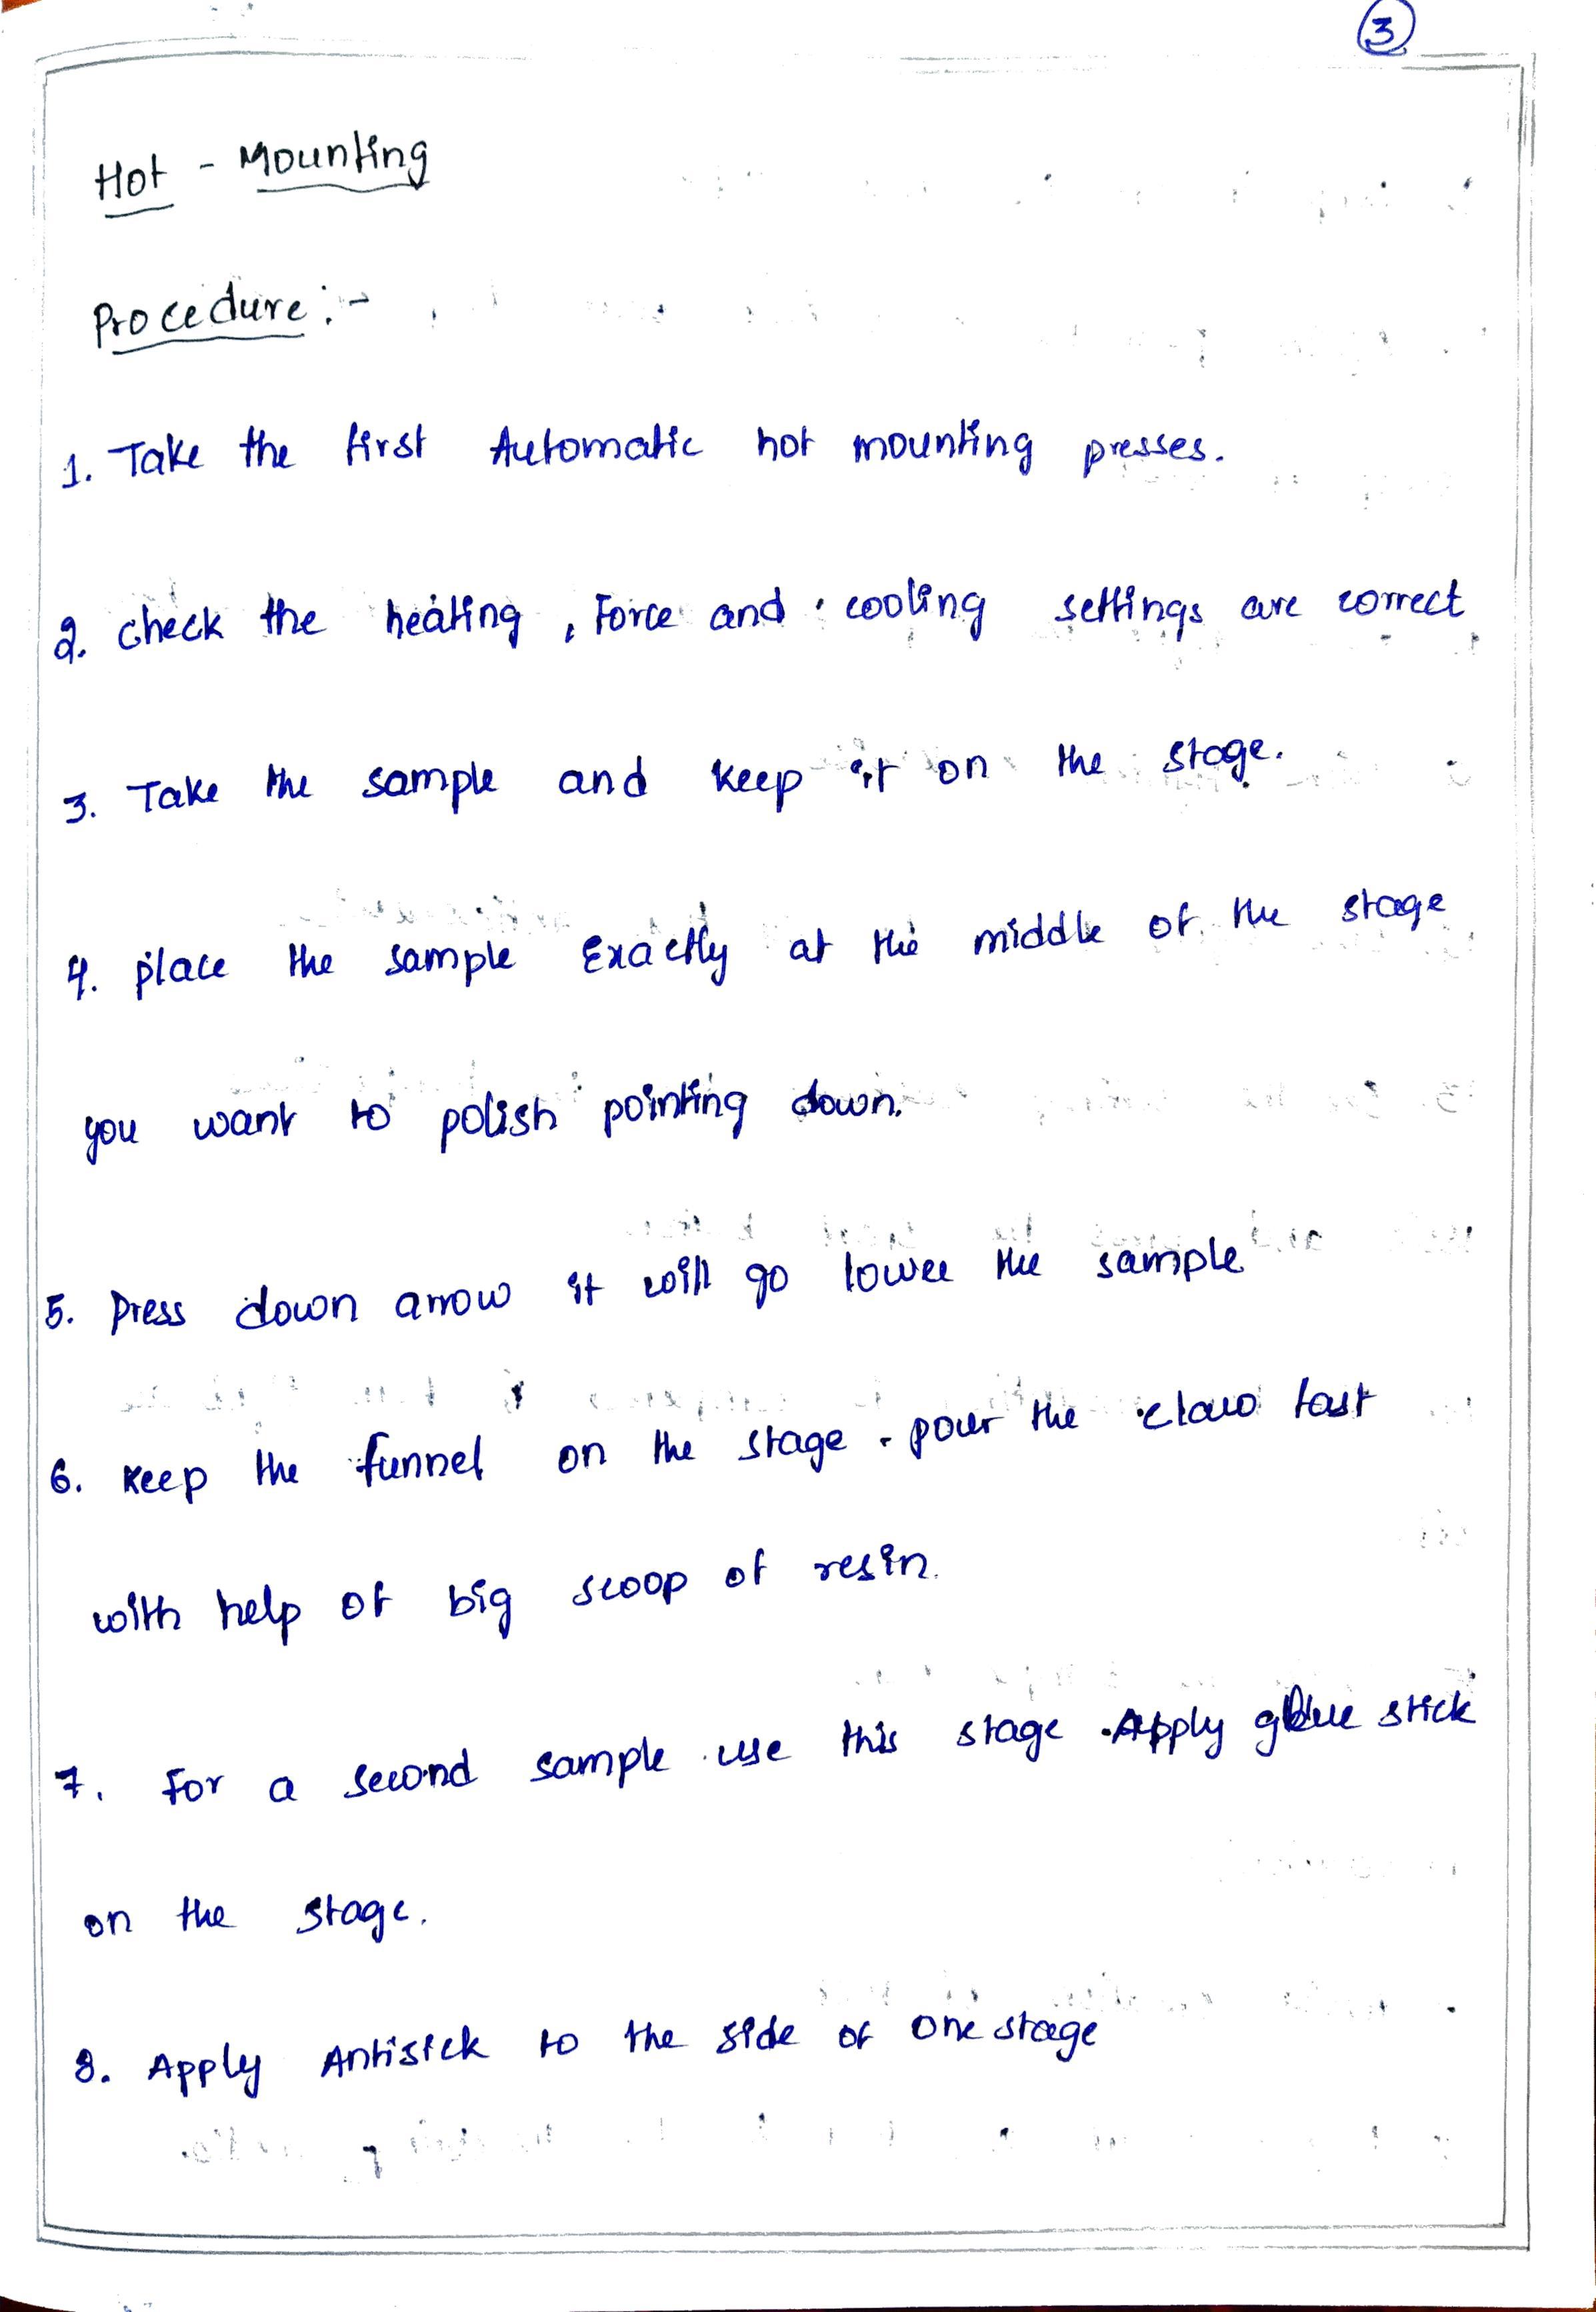 3
Hot - Mounting
Procedure :-
1. Take the first Automatic hot mounting presses.
2. check the heating, Force and cooling settings are correct
3. Take the sample and keep it on the stage.
4. place the sample Exactly at the middle of the stage
you want to polish pointing down.
5. Press down arrow it will go lower the sample
6. Keep the funnel on the stage. pour the claro fast
with help of big scoop of resin.
7. For a second sample use this stage. Apply glue stick
on the stage.
8. Apply Antistick to the side of one stage